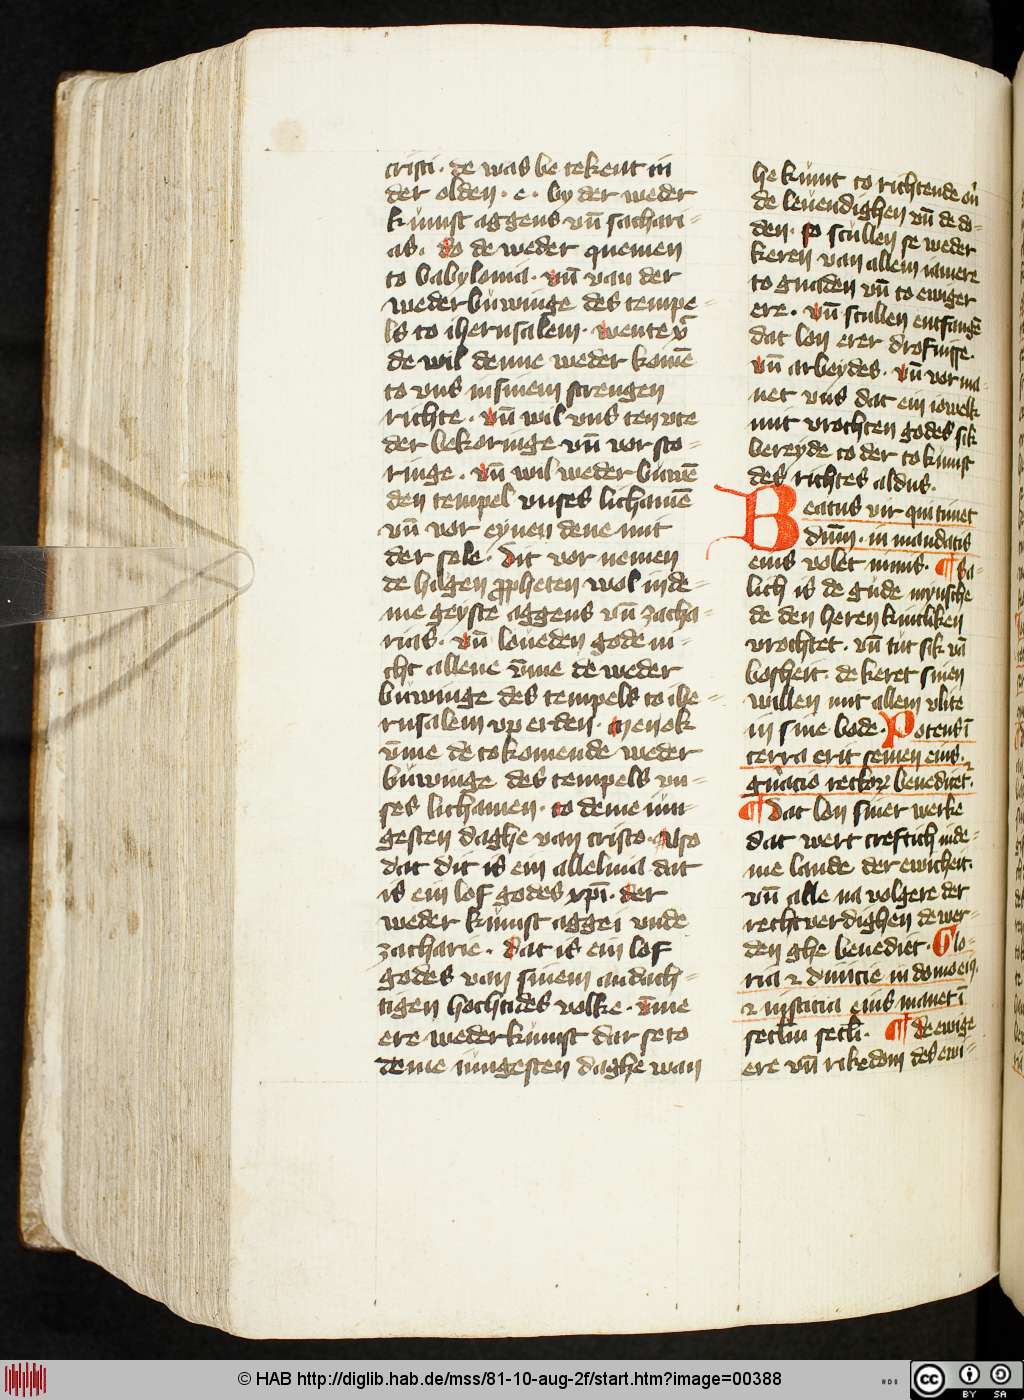 cristi · de was be tekent in
der olden · e · by der weder
kumst aggeus vn̄ sachari-
as · do de weder quemen
to babylonia · vn̄ van der
wederbuwinge des tempe-
ls to iherusalem · wente
de wil denne weder komē
to vns in sinem strengen
richte · vn̄ wil vns ten vte
der bekoringe vn̄ vorsto-
ringe · vn̄ wil weder buwē
den tempel vnses lichamē
vn̄ vor eynen dene mit
der sele · Dit vor nemen
de hilgen ꝓpheten wol in de-
me geyste aggeus vn̄ zacha-
rias · vn̄ loueden gode ni-
cht allene v̄me de weder
buwinge des tempels to ihe-
rusalem vp erden · Men ok
v̄me de tokomende weder
buwinge des tempels vn-
ses lichamen · to deme iun-
gesten daghe van cristo · Also
dat dit is ein alleluia dat
is ein lof godes xp̄i · der
weder kumst aggei vnde
zacharie · dat is ein lof
godes van sinem andach-
tigen hochtides volke · v̄me
ere wederkumst dar se to
deme iungesten daghe wan
he kumt to richtende ou̅
de leuendighen vn̄ de do-
den · so scullen se weder
keren van allem iamere
to gnaden vn̄ to ewiger
ere · vn̄ scullen entfangē
dat lon erer drofnisse ·
vn̄ arbeydes · vn̄ vor ma-
net vns dat ein iowelk
mit vrochten godes sik
bereyde to der tokumst
des richtes aldus ·
Beatus vir qui timet
dn̄m · in mandatis
eius volet nimis · ¶ Sa-
lich is de gude mynsche
de den heren kintliken
vrochtet · vn̄ tut sik vā
bosheit · de keret sinen
willen mit allem vlite
in sine bode · Potens ī
terra erit semen eius ·
gn̄acio rectoꝝ benedicet᷑ ·
¶ Dat lon siner werke
dat wert creftich in de-
me lande der ewicheit ·
vn̄ alle na volgere der
rechtverdighen de wer-
den ghe benediet · Glo-
ria ⁊ diuicie in domo eiꝰ
⁊ iusticia eius manet ī
secl̄m secl̄i · ¶ De ewige
ere vn̄ rikedom des ewi-
© HAB http://diglib.hab.de/mss/81-10-aug-2f/start.htm?image=00388
cc
BY SA